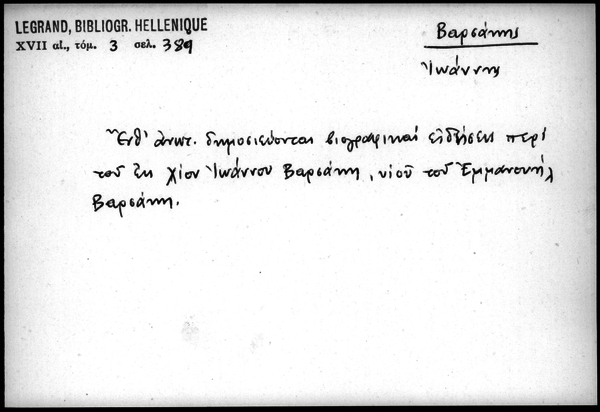 LEGRAND, BIBLIOGR. HELLENIQUE
XVII αἰ., τόμ. 3 σελ. 389
Βαρσάκης
Ἰωάννης
Ἔνθ' ἀνωτ. δημοσιεύονται βιογραφικαὶ εἰδήσεις περὶ
τοῦ ἐκ Χίου Ἰωάννου Βαρσάκη, υἱοῦ τοῦ Ἐμμανουὴλ
Βαρσάκη.